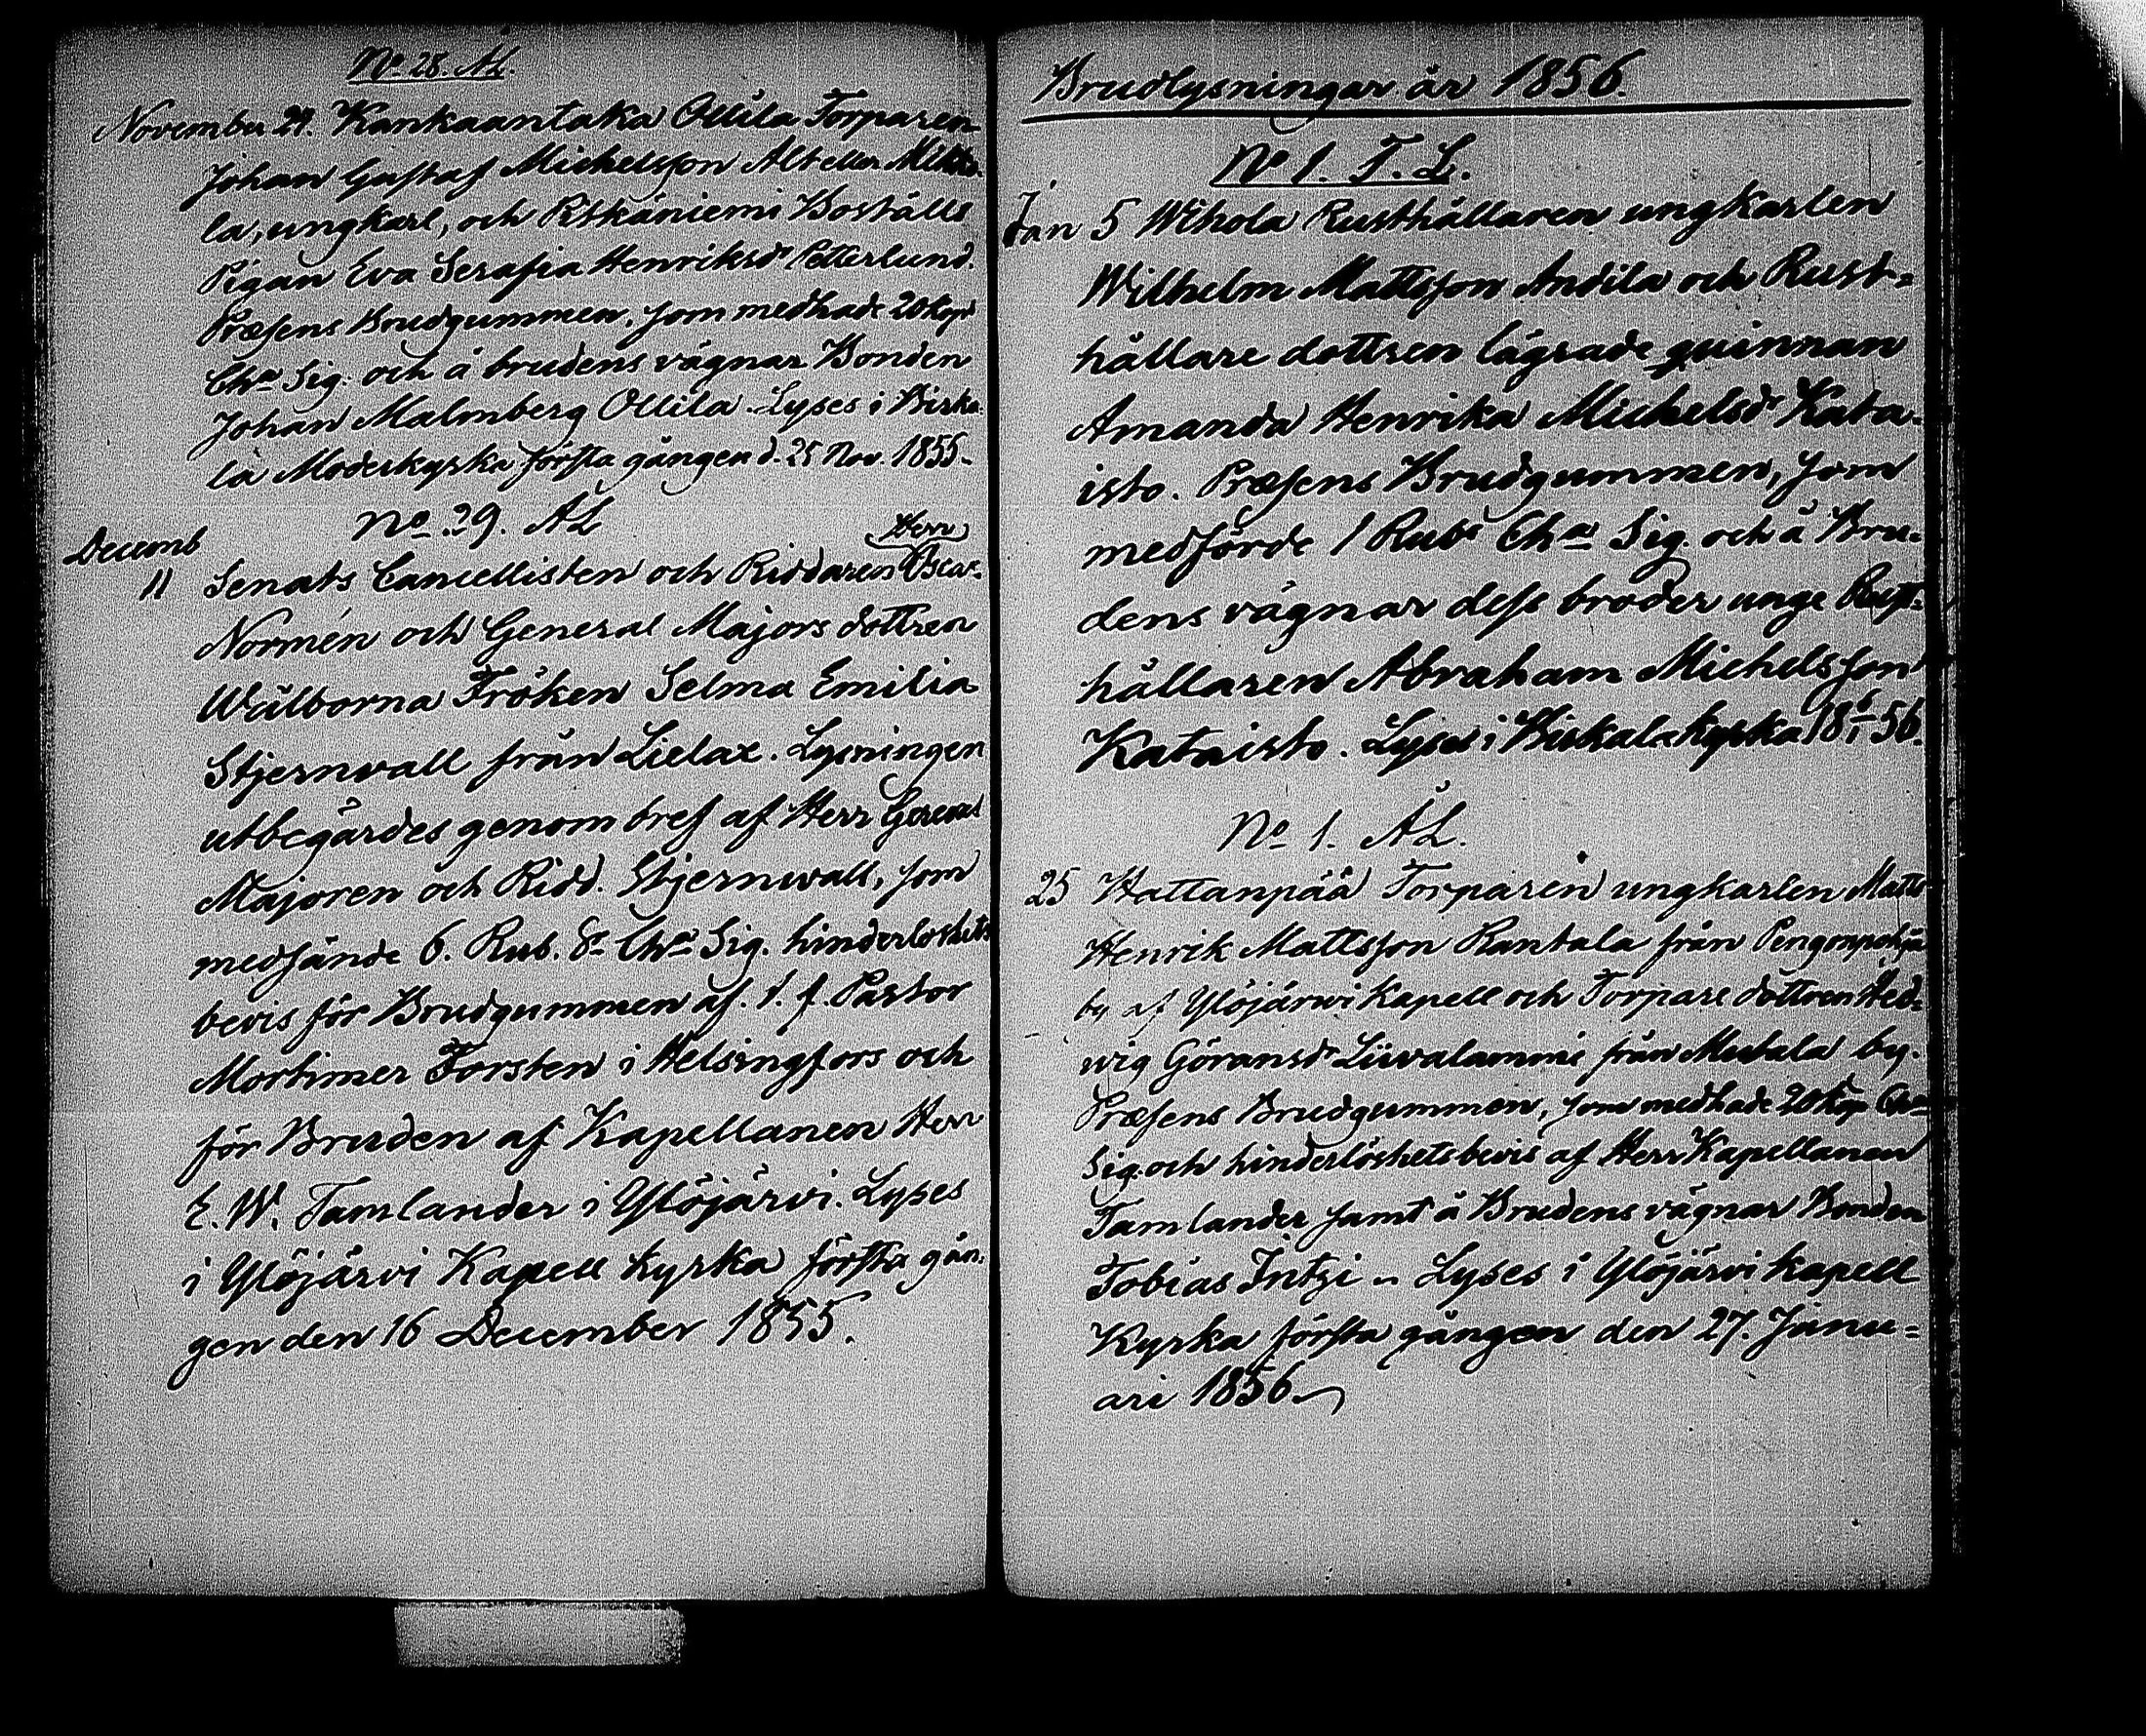 No 28. ÄL.
November 24. Kankaantaka Ollila Torparen
Johan Gustaf Michelsson Alt eller Mikko-
la, ungkarl, och Pitkäniemi Boställs
Pigan Eva Serafia Henriksdr Petterlund.
Præsens Brudgummen, som medhade 20 Kop
Cha Sig. och å brudens vägnar Bonden
Johan Malmberg Ollila. Lyses i Birka-
la Moderkyrka första gången d. 25 Nov. 1855.
No 29. ÄL
Decemb
Herr
11 Senats Cancellisten och Riddaren Oscar
Normén och General Majors dottren
Wälborna Fröken Selma Emilia
Stjernvall från Lielax. Lysningen
utbegärdes genom bref af Herr General
Majoren och Ridd. Stjernvall, som
medsände 6. Rub. Sr Cha Sig. hinderlöshets
bevis för Brudgummen af. t. f. Pastor
Mortimer Forsten i Helsingfors och
för Bruden af Kapellanen Herr
E. W. Tamlander i Ylöjärvi. Lyses
i Ylöjärvi Kapell kyrka första gån-
gen den 16 December 1855.
Brudlysningar år 1856.
No 1. T. L.
Jan 5 Wihola Rusthållaren ungkarlen
Wilhelm Mattsson Andila och Rust=
hållare dottren lägrade quinnan
Amanda Henrika Michelsdr Kata-
isto. Præsens Brudgummen, som
medförde 1 Rubr Cha Sig. och å Bru-
dens vägnar dess broder unge Rust-
hållaren Abraham Michelsson
Kataisto. Lyses i Birkala kyrka 18 6/1 56.
No 1. ÄL.
25 Hattanpää Torparen ungkarlen Matts
Henrik Mattsson Rantala från Pengonpohja
by af Ylöjärwi Kapell och Torpare dottren Hed-
wig Göransdr Liiwalammi från Mutala by.
Præsens Brudgummen, som medhade 20 Kop Cha
Sig. och hinderlöshetsbevis af Herr Kapellanen
Tamlander samt å Brudens vägnar Bonden
Tobias Intzi. Lyses i Ylöjärvi kapell
Kyrka första gången den 27. Janu=
ari 1856.